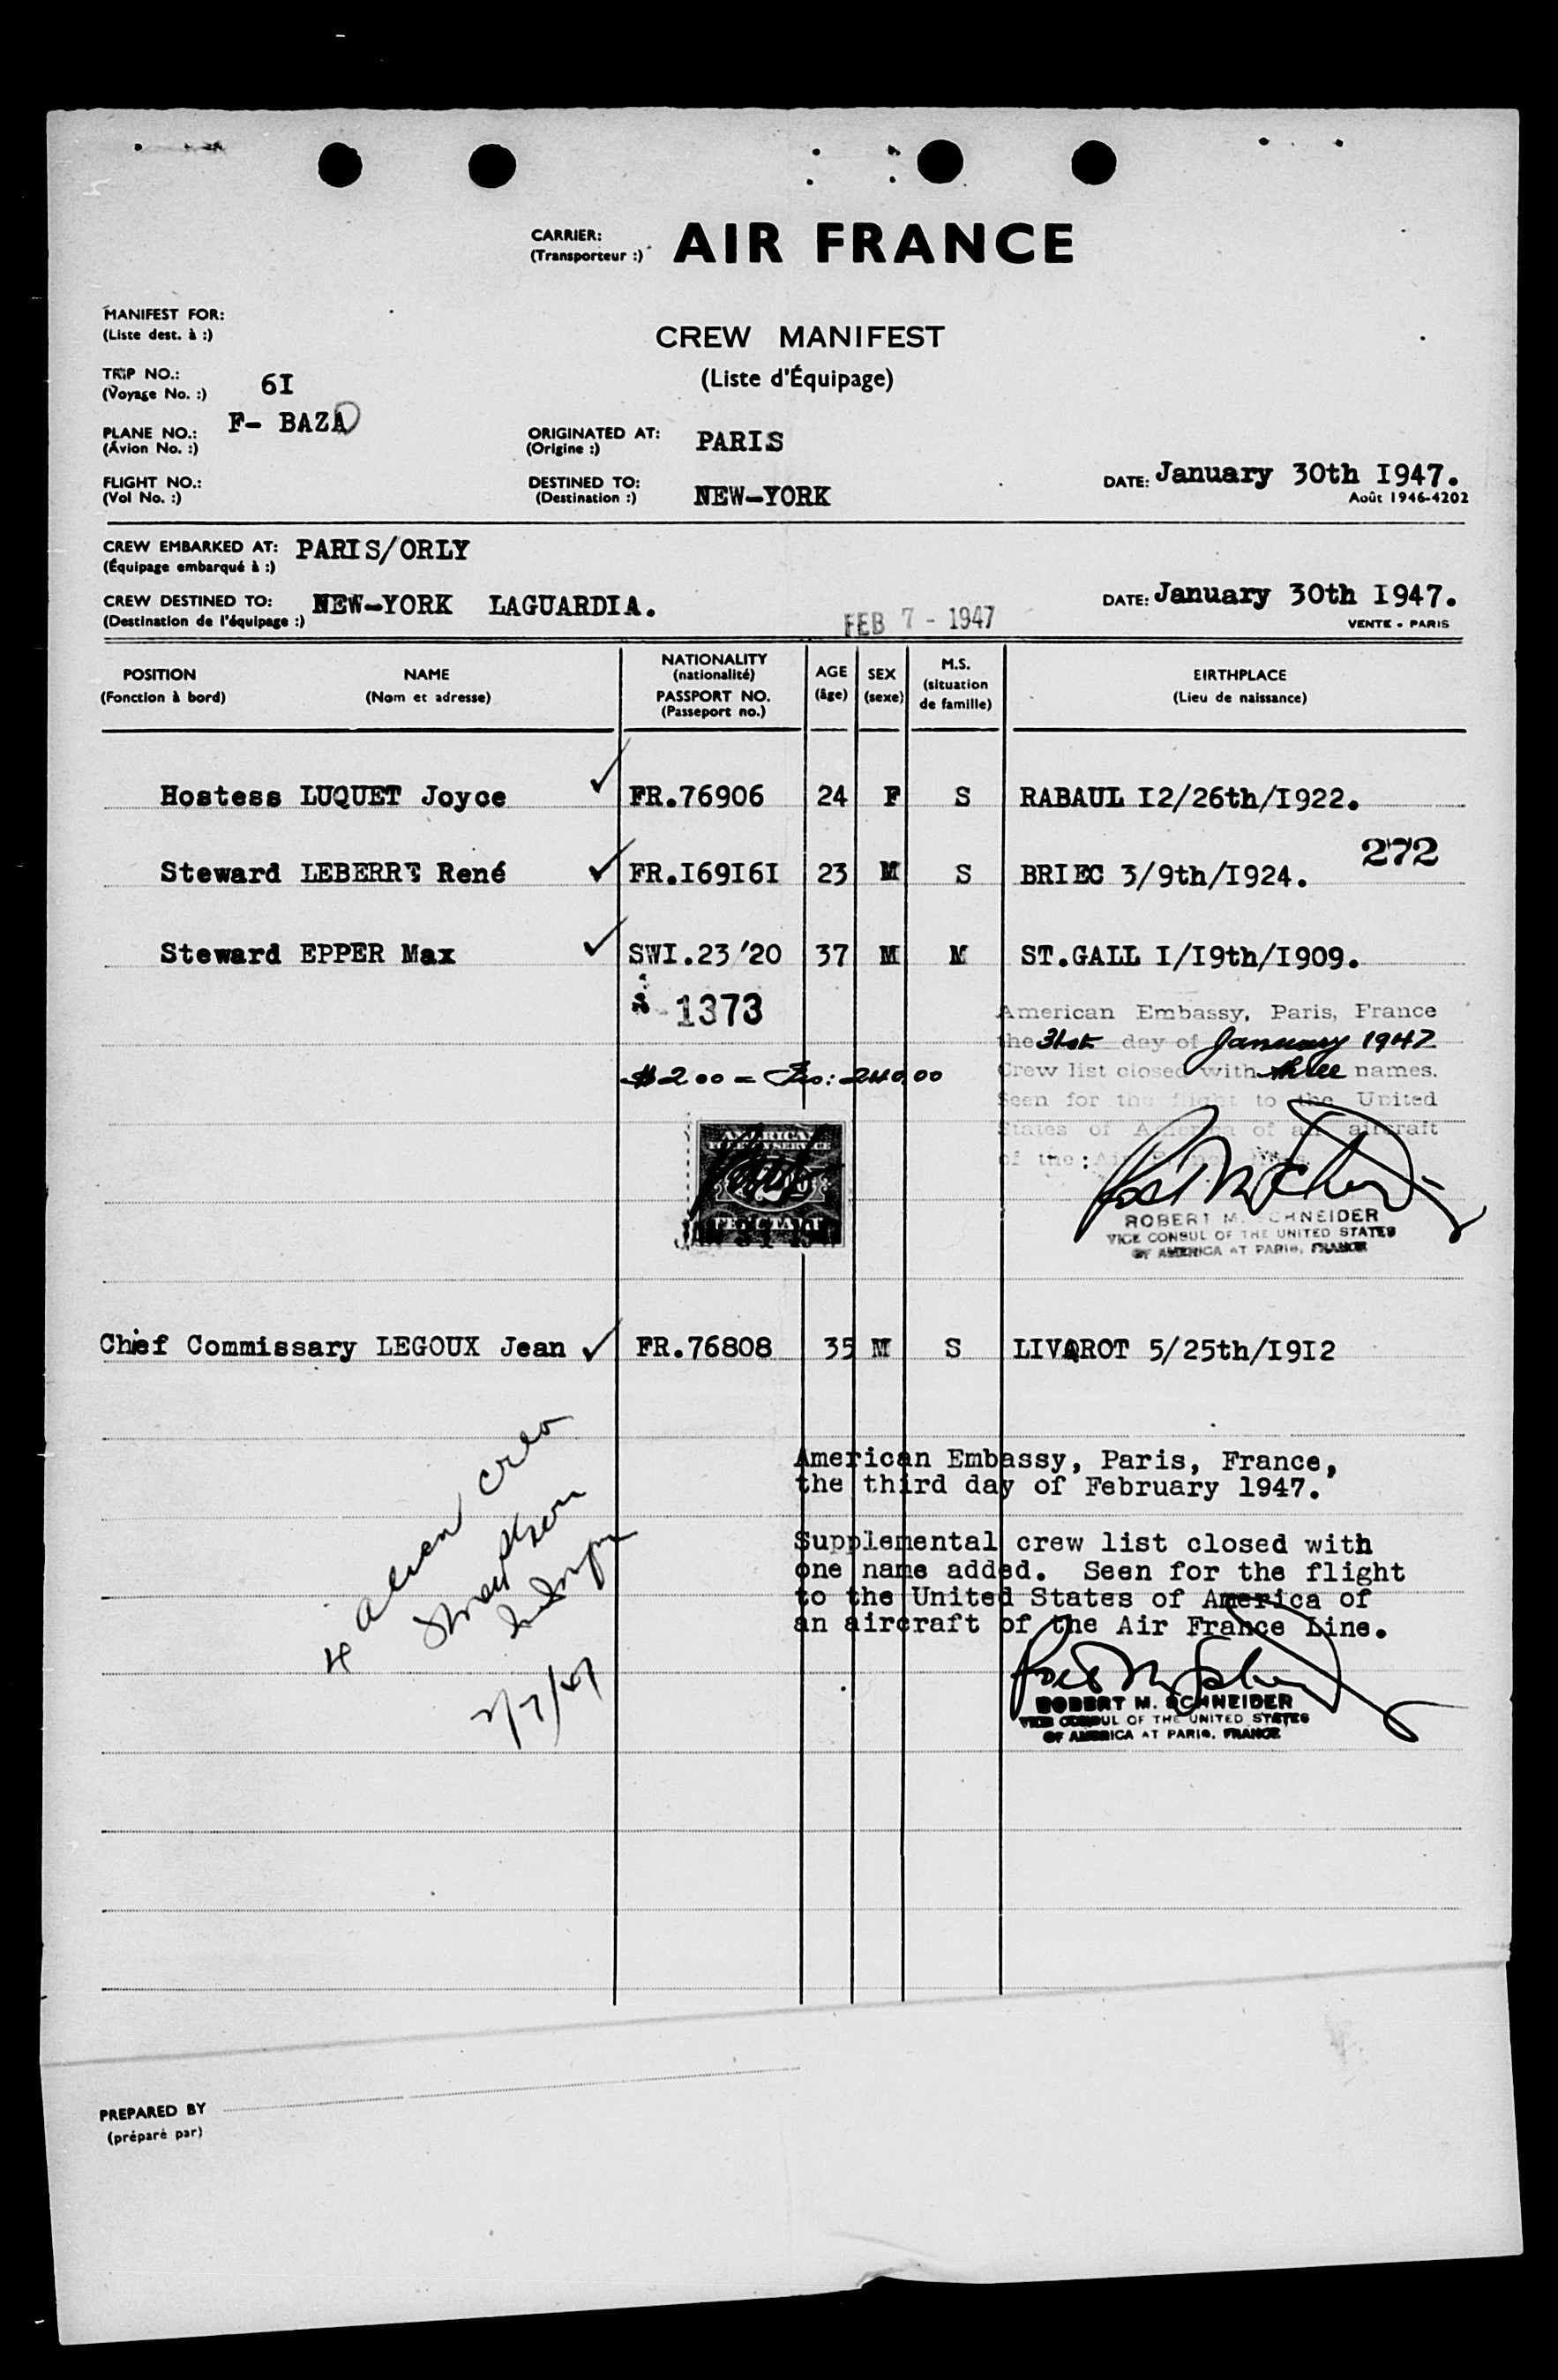 CARRIER: AIR FRANCE
(Transporteur :)
MANIFEST FOR:
(Liste dest. à :)
CREW MANIFEST
(Liste d'Équipage)
TRIP NO.: 6I
(Voyage No. :)
PLANE NO.: F- BAZA
(Avion No. :)
ORIGINATED AT: PARIS
(Origine :)
FLIGHT NO.:
(Vol No. :)
DESTINED TO: NEW-YORK
(Destination :)
DATE: January 30th I947.
Août 1946-4202
CREW EMBARKED AT: PARIS/ORLY
(Équipage embarqué à :)
CREW DESTINED TO: NEW-YORK LAGUARDIA.
(Destination de l'équipage :)
DATE: January 30th I947.
VENTE - PARIS
FEB 7 - 1947
POSITION NAME NATIONALITY AGE SEX M.S. BIRTHPLACE
(Fonction à bord) (Nom et adresse) (nationalité) (âge) (sexe) (situation de famille) (Lieu de naissance)
PASSPORT NO.
(Passeport no.)
Hostess LUQUET Joyce FR.76906 24 F S RABAUL I2/26th/I922.
272
Steward LEBERRE René FR.I69I6I 23 M S BRIEC 3/9th/I924.
Steward EPPER Max SWI.23'20 37 M M ST.GALL I/I9th/I909.
1373
American Embassy, Paris, France
the 31st day of January 1947
$2.00 = Frs: 240.00
Crew list closed with three names.
Seen for the flight to the United
States of America of an aircraft
of the : Air
AMERICAN
SERVICE
JAN 31 194
ROBERT M. SCHNEIDER
VICE CONSUL OF THE UNITED STATES
OF AMERICA AT PARIS, FRANCE
Chief Commissary LEGOUX Jean FR.76808 35 M S LIVAROT 5/25th/I9I2
American Embassy, Paris, France,
the third day of February 1947.
Supplemental crew list closed with
one name added. Seen for the flight
to the United States of America of
an aircraft of the Air France Line.
4 alien crew
2/7/47
ROBERT M. SCHNEIDER
VICE CONSUL OF THE UNITED STATES
OF AMERICA AT PARIS, FRANCE
PREPARED BY
(préparé par)